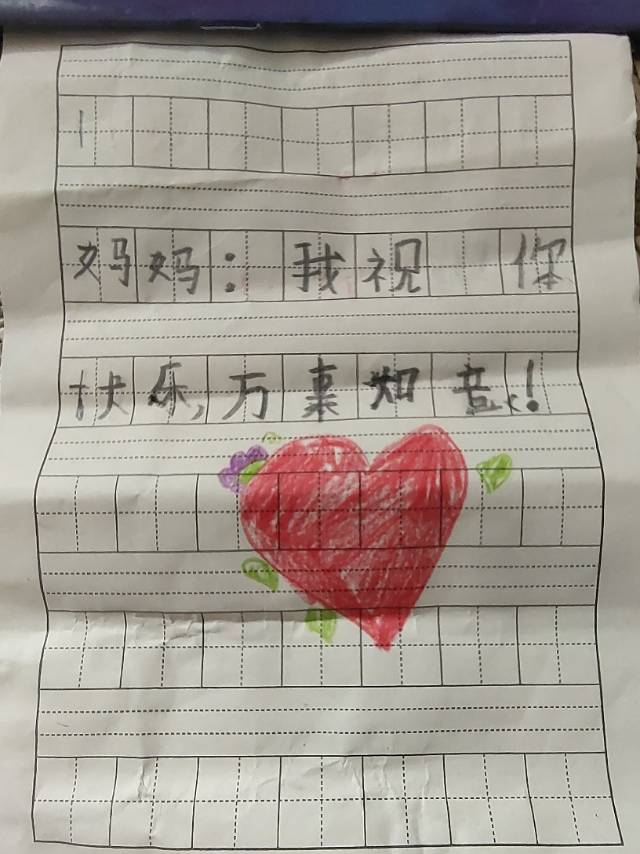 妈妈：我祝 你
快乐,万事如意!